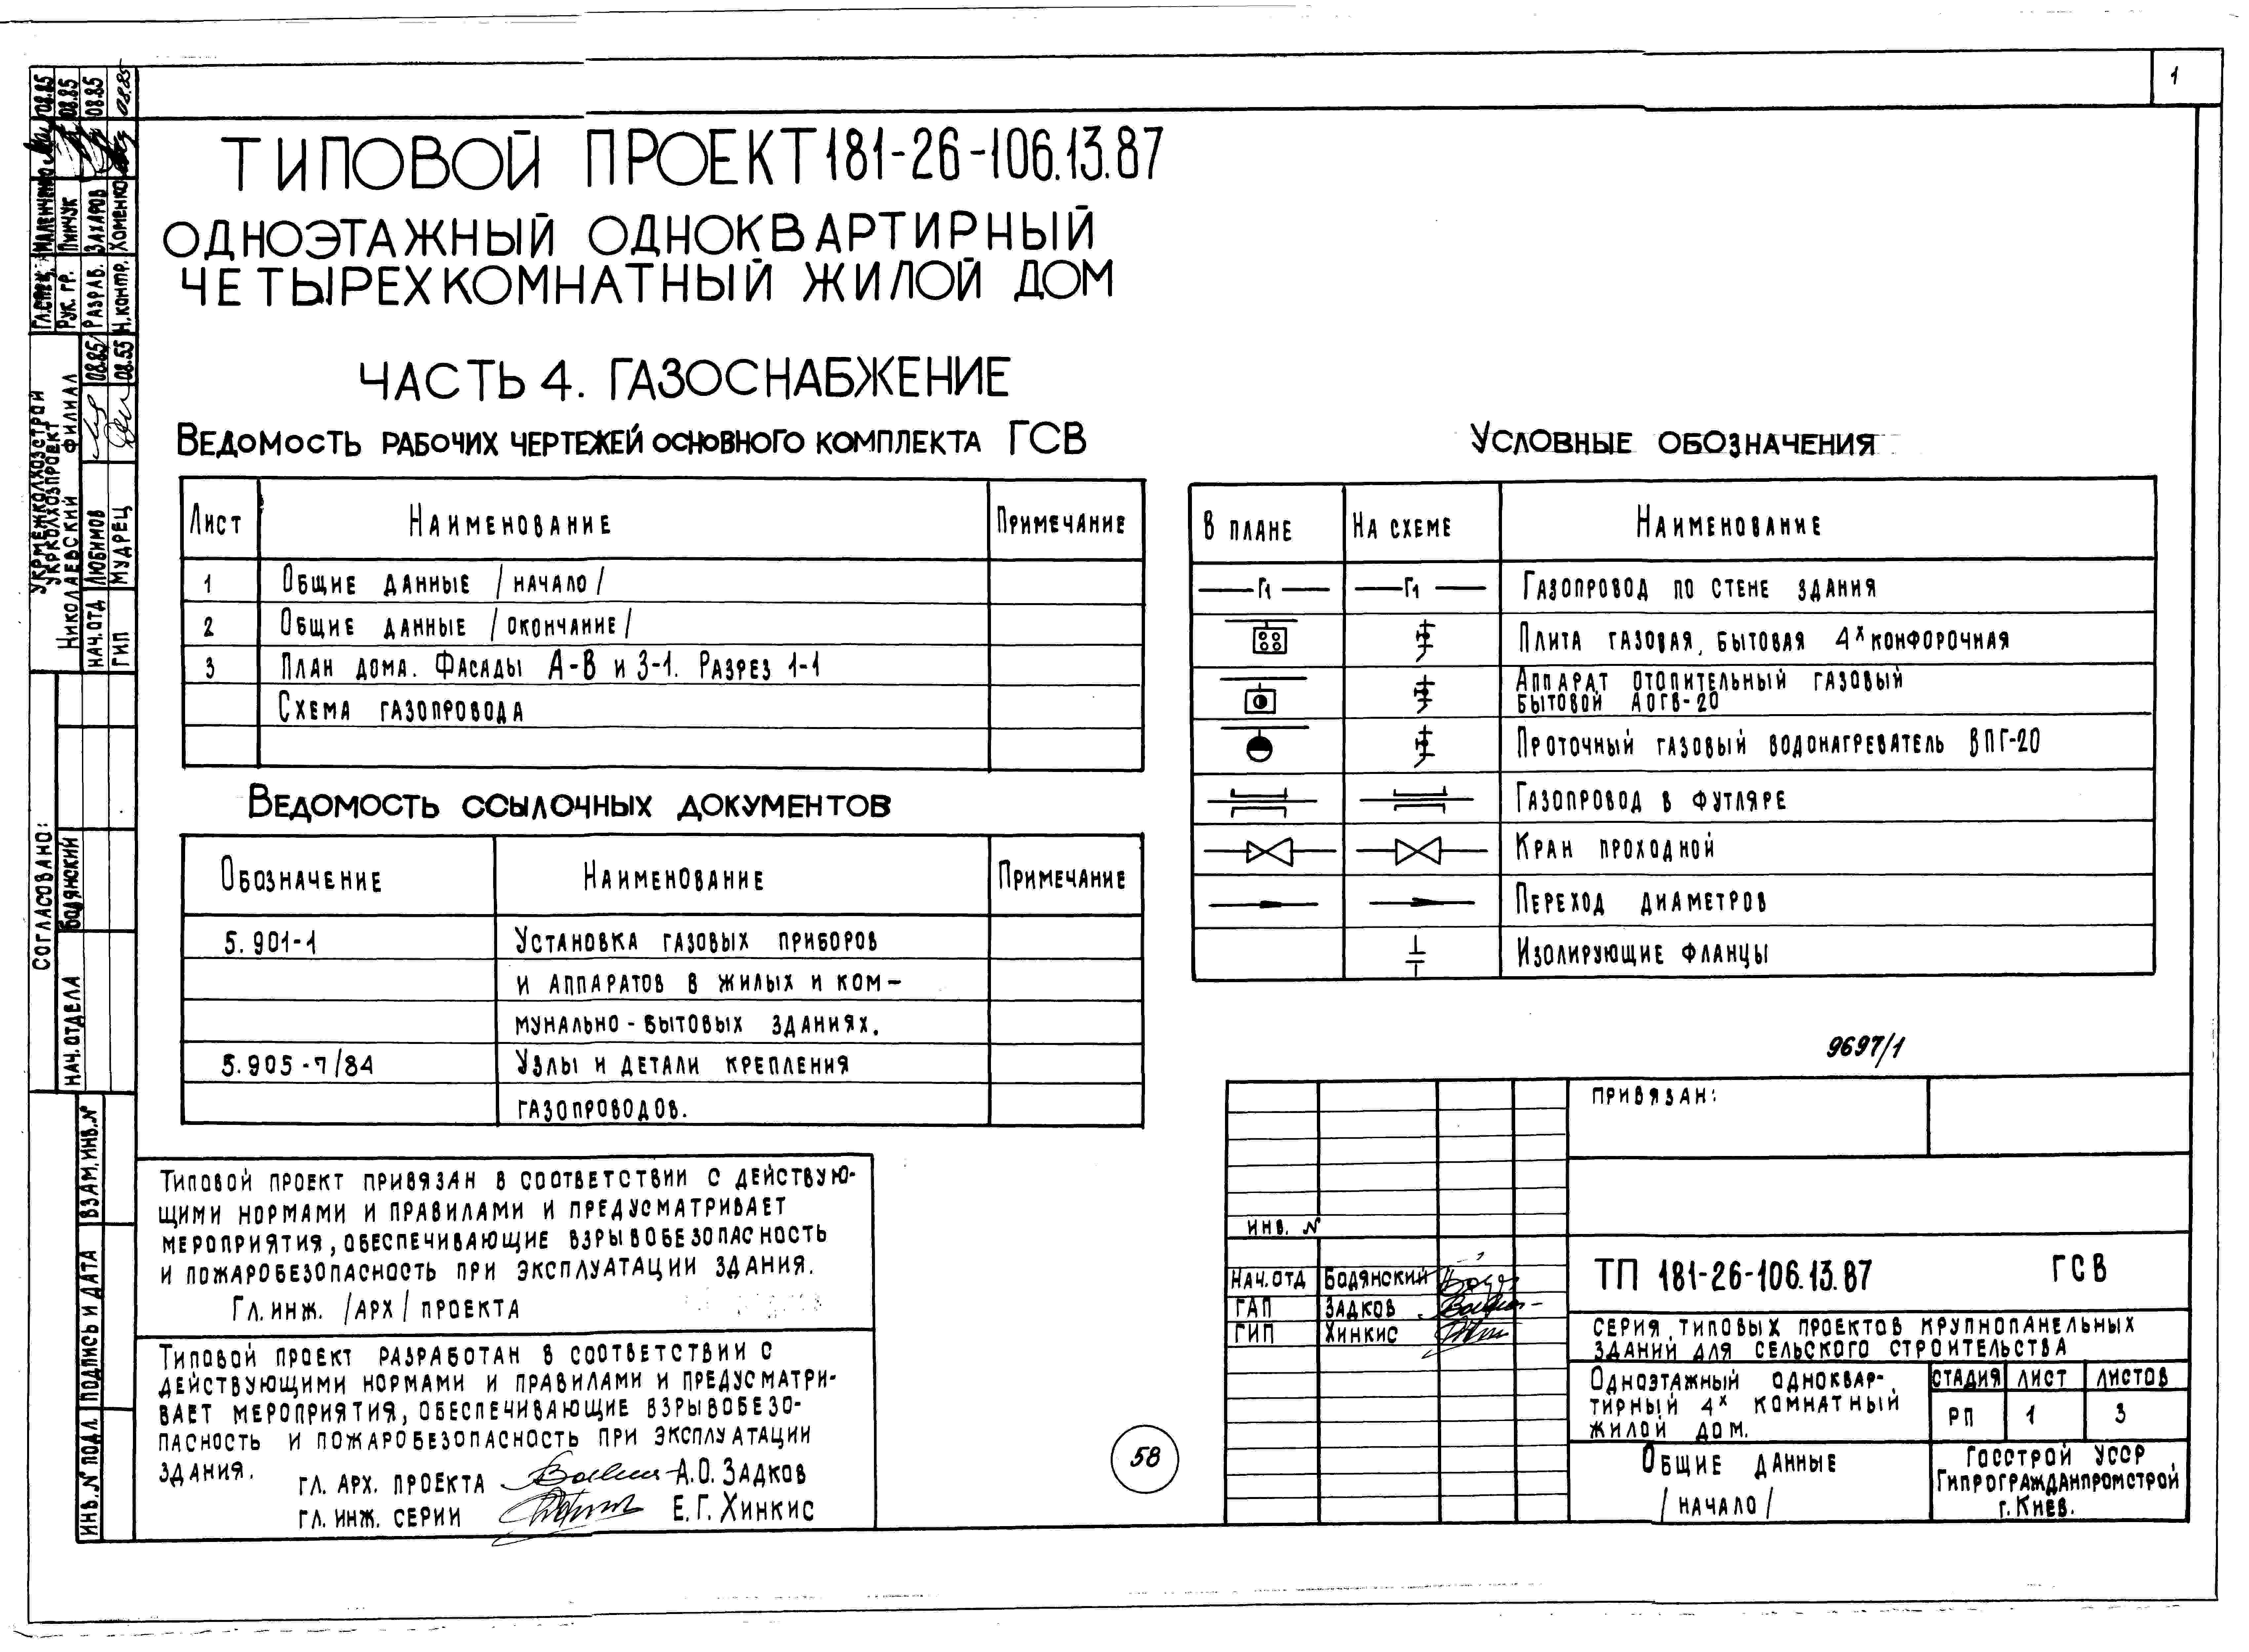 1
ТИПОВОЙ ПРОЕКТ 181-26-106.13.87
ОДНОЭТАЖНЫЙ ОДНОКВАРТИРНЫЙ
ЧЕТЫРЕХКОМНАТНЫЙ ЖИЛОЙ ДОМ
ЧАСТЬ 4. ГАЗОСНАБЖЕНИЕ
ВЕДОМОСТЬ РАБОЧИХ ЧЕРТЕЖЕЙ ОСНОВНОГО КОМПЛЕКТА ГСВ
ЛИСТ НАИМЕНОВАНИЕ ПРИМЕЧАНИЕ
1 ОБЩИЕ ДАННЫЕ /НАЧАЛО/
2 ОБЩИЕ ДАННЫЕ /ОКОНЧАНИЕ/
3 ПЛАН ДОМА. ФАСАДЫ А-В И 3-1. РАЗРЕЗ 1-1
СХЕМА ГАЗОПРОВОДА
ВЕДОМОСТЬ ССЫЛОЧНЫХ ДОКУМЕНТОВ
ОБОЗНАЧЕНИЕ НАИМЕНОВАНИЕ ПРИМЕЧАНИЕ
5.901-1 УСТАНОВКА ГАЗОВЫХ ПРИБОРОВ
И АППАРАТОВ В ЖИЛЫХ И КОМ-
МУНАЛЬНО-БЫТОВЫХ ЗДАНИЯХ.
5.905-7/84 УЗЛЫ И ДЕТАЛИ КРЕПЛЕНИЯ
ГАЗОПРОВОДОВ.
УСЛОВНЫЕ ОБОЗНАЧЕНИЯ
В ПЛАНЕ НА СХЕМЕ НАИМЕНОВАНИЕ
Г1 Г1 ГАЗОПРОВОД ПО СТЕНЕ ЗДАНИЯ
ПЛИТА ГАЗОВАЯ, БЫТОВАЯ 4х КОНФОРОЧНАЯ
АППАРАТ ОТОПИТЕЛЬНЫЙ ГАЗОВЫЙ
БЫТОВОЙ АОГВ-20
ПРОТОЧНЫЙ ГАЗОВЫЙ ВОДОНАГРЕВАТЕЛЬ ВПГ-20
ГАЗОПРОВОД В ФУТЛЯРЕ
КРАН ПРОХОДНОЙ
ПЕРЕХОД ДИАМЕТРОВ
ИЗОЛИРУЮЩИЕ ФЛАНЦЫ
9697/1
ТИПОВОЙ ПРОЕКТ ПРИВЯЗАН В СООТВЕТСТВИИ С ДЕЙСТВУЮ-
ЩИМИ НОРМАМИ И ПРАВИЛАМИ И ПРЕДУСМАТРИВАЕТ
МЕРОПРИЯТИЯ, ОБЕСПЕЧИВАЮЩИЕ ВЗРЫВОБЕЗОПАСНОСТЬ
И ПОЖАРОБЕЗОПАСНОСТЬ ПРИ ЭКСПЛУАТАЦИИ ЗДАНИЯ.
ГЛ. ИНЖ. /АРХ/ ПРОЕКТА
ТИПОВОЙ ПРОЕКТ РАЗРАБОТАН В СООТВЕТСТВИИ С
ДЕЙСТВУЮЩИМИ НОРМАМИ И ПРАВИЛАМИ И ПРЕДУСМАТРИ-
ВАЕТ МЕРОПРИЯТИЯ, ОБЕСПЕЧИВАЮЩИЕ ВЗРЫВОБЕЗО-
ПАСНОСТЬ И ПОЖАРОБЕЗОПАСНОСТЬ ПРИ ЭКСПЛУАТАЦИИ
ЗДАНИЯ.
ГЛ. АРХ. ПРОЕКТА А.О. ЗАДКОВ
ГЛ. ИНЖ. СЕРИИ Е.Г. ХИНКИС
58
ПРИВЯЗАН:
ИНВ. N
НАЧ. ОТД БОДЯНСКИЙ
ГАП ЗАДКОВ
ГИП ХИНКИС
ТП 181-26-106.13.87 ГСВ
СЕРИЯ ТИПОВЫХ ПРОЕКТОВ КРУПНОПАНЕЛЬНЫХ
ЗДАНИЙ ДЛЯ СЕЛЬСКОГО СТРОИТЕЛЬСТВА
ОДНОЭТАЖНЫЙ ОДНОКВАР-
ТИРНЫЙ 4х КОМНАТНЫЙ
ЖИЛОЙ ДОМ.
СТАДИЯ ЛИСТ ЛИСТОВ
РП 1 3
ОБЩИЕ ДАННЫЕ
/НАЧАЛО/
ГОССТРОЙ УССР
ГИПРОГРАЖДАНПРОМСТРОЙ
г. КИЕВ.
УКРМЕЖКОЛХОЗСТРОЙ
УКРКОЛХОЗПРОЕКТ
НИКОЛАЕВСКИЙ ФИЛИАЛ
НАЧ. ОТД ЛЮБИМОВ 08.85
ГИП МУДРЕЦ 08.55
08.85
РУК. ГР. ПИНЧУК 08.85
РАЗРАБ. ЗАХАРОВ 08.85
Н. КОНТР. ХОМЕНКО 08.85
СОГЛАСОВАНО:
НАЧ. ОТДЕЛА БОДЯНСКИЙ
ВЗАМ. ИНВ. N
ПОДПИСЬ И ДАТА
ИНВ. N ПОДЛ.